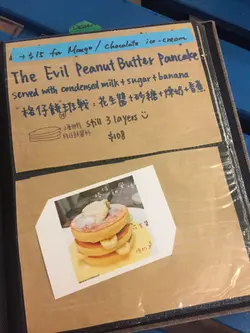 +$15 for Mango / Chocolate ice-cream
The Evil Peanut Butter Pancake
served with condensed milk + sugar + banana
花生醬 + 砂糖 + 煉奶 + 香蕉
still 3 layers
$108